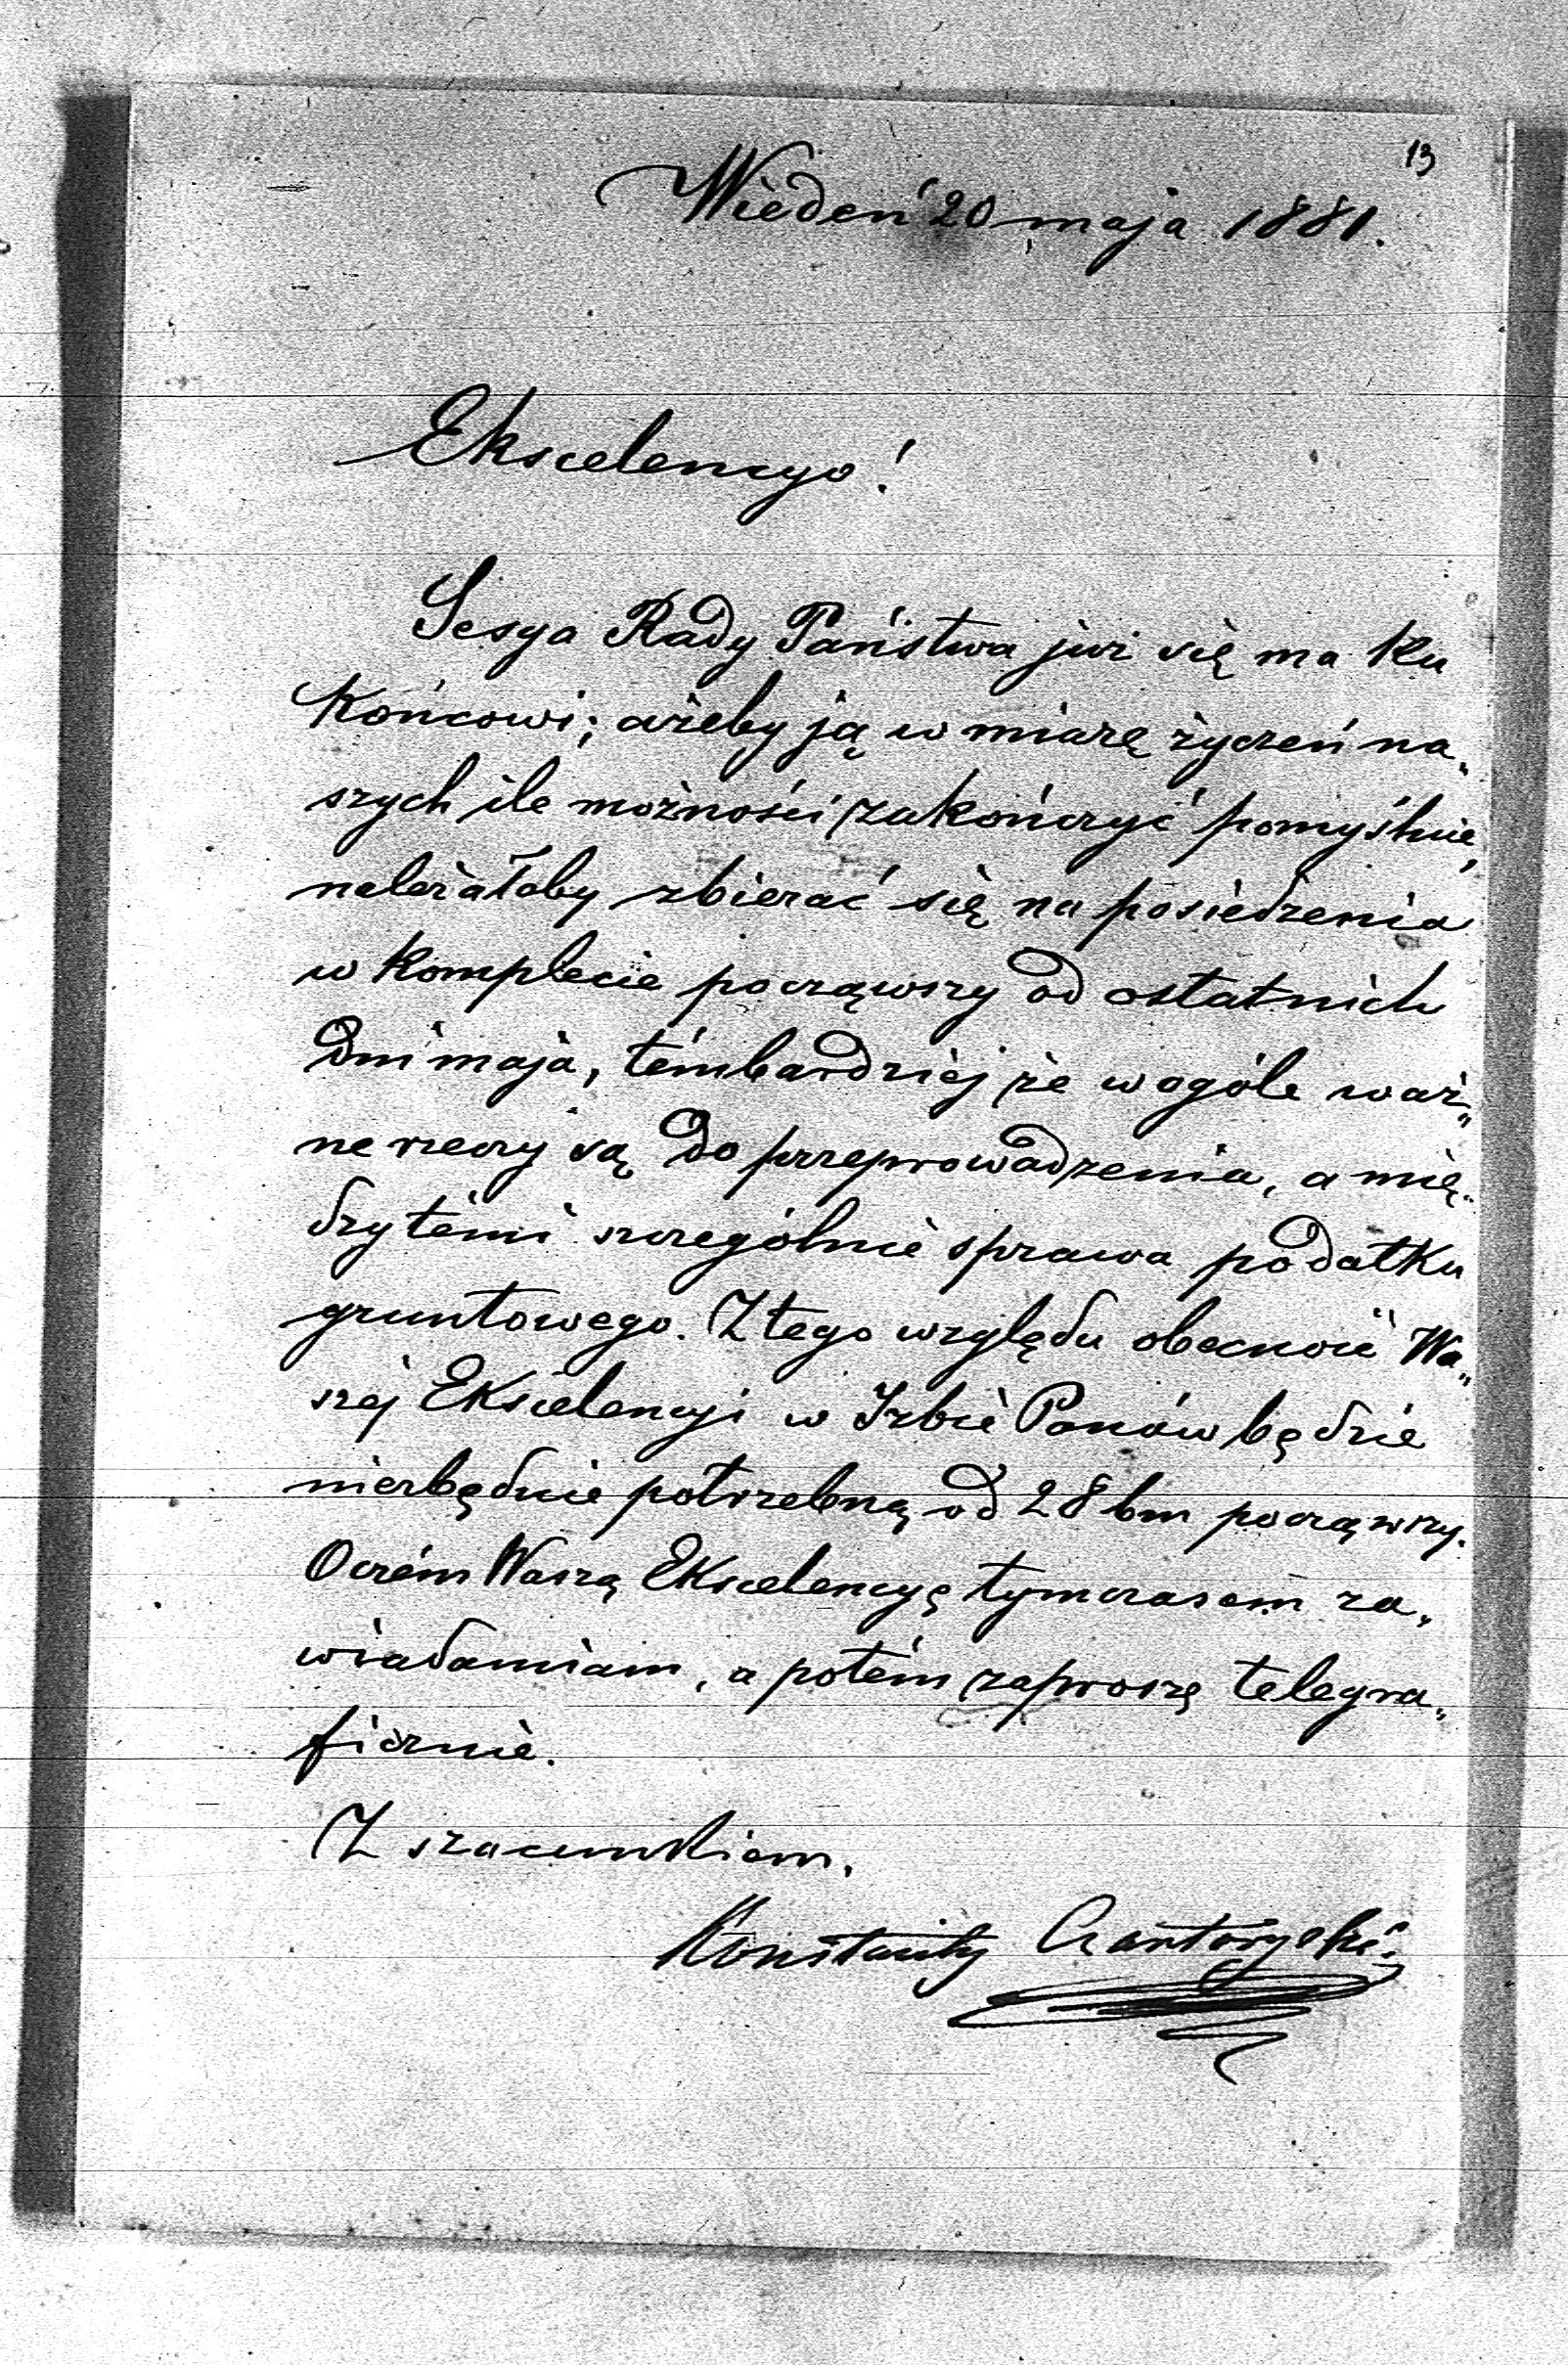 13
Wiedeń 20 maja 1881.
Ekscelencyo!
Sesya Rady Państwa już się ma ku
końcowi; ażeby ją w miarę życzeń na„
szych ile możności zakończyć pomyślnie,
należałoby zbierać się na posiedzenia
w komplecie począwszy od ostatnich
dni maja, témbardziej że wogóle waż„
ne rzeczy są do przeprowadzenia, a mię„
dzy témi szczególnie sprawa podatku
gruntowego. Z tego względu obecność Wa„
szej Ekscelencyi w Izbie Panów będzie
niezbędnie potrzebną od 28 bm począwszy.
Oczém Waszą Ekscelencyę tymczasem za„
wiadamiam, a potém zaproszę telegra„
ficznie.
Z szacunkiem.
Konstanty Czartoryski